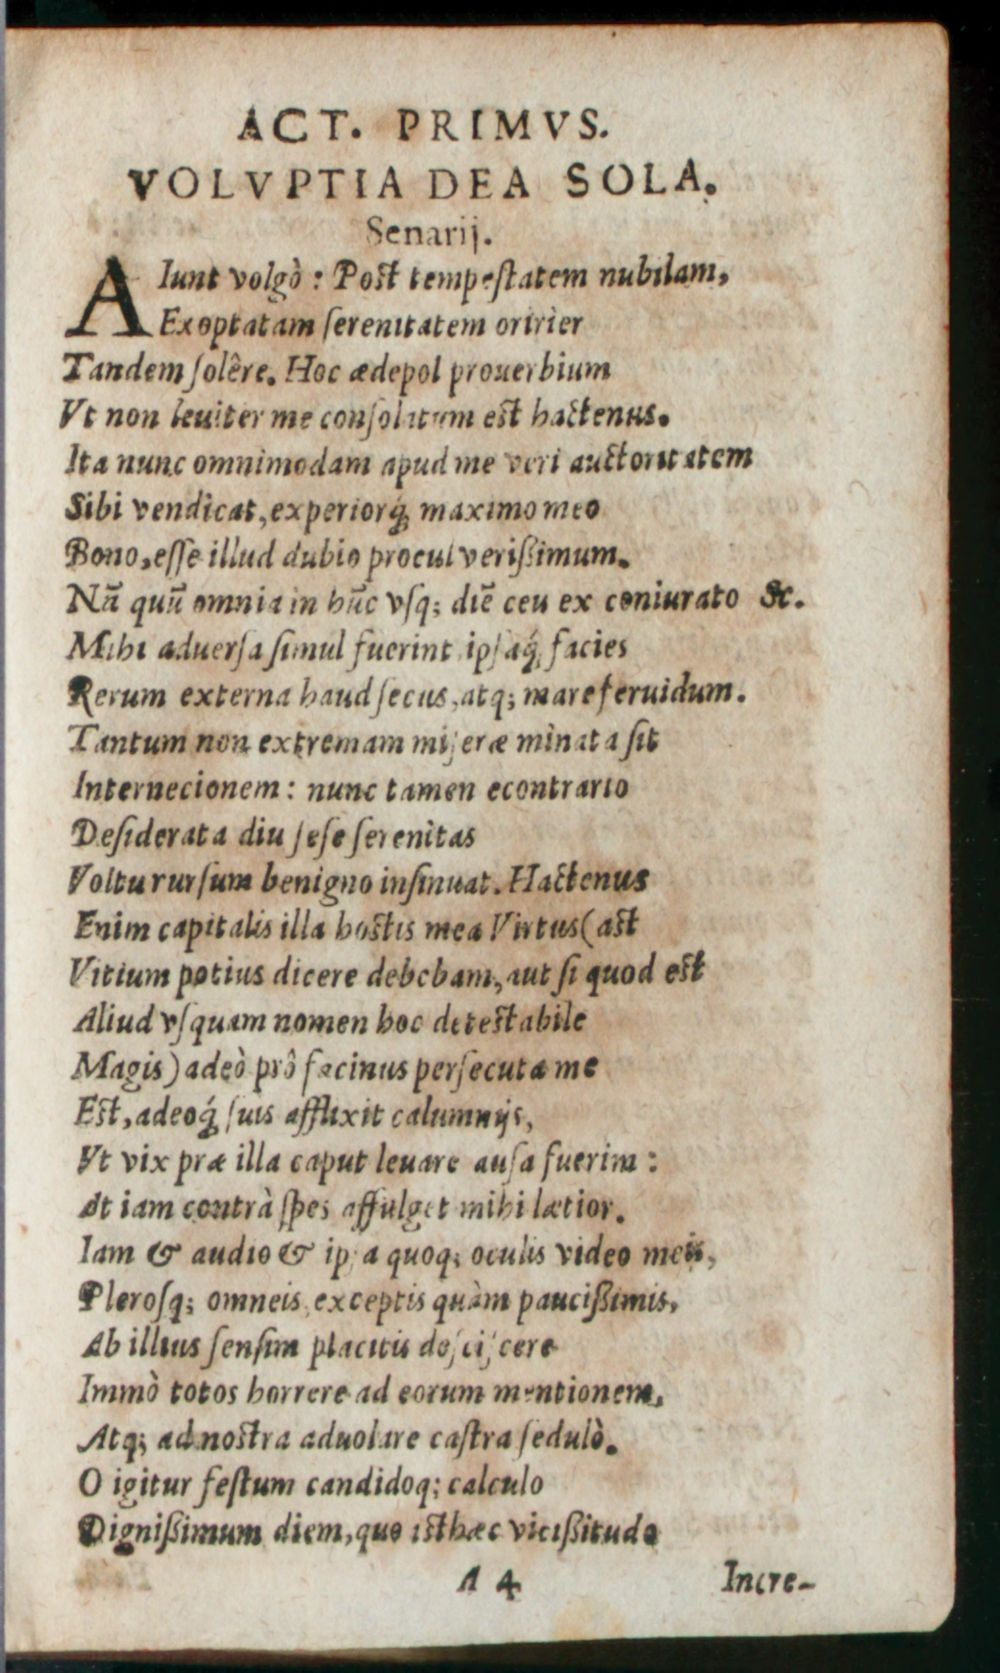 ACT. PRIMVS.
VOLVPTIA DEA SOLA.
Senarij.
AIunt volgò : Post tempestatem nubilam,
Exoptatam ſerenitatem oririer
Tandem ſolêre. Hoc ædepol prouerbium
Vt non leuiter me conſolatum est hactenus.
Ita nunc omnimodam apud me veri auctoritatem
Sibi vendicat, experiorq́; maximo meo
Bono, eſſe illud dubio procul verißimum.
Nã quũ omnia in hũc vſq; diẽ ceu ex coniurato &c.
Mihi aduerſa ſimul fuerint ipſaq́; facies
Rerum externa haud ſecus, atq; mare feruidum.
Tantum non extremam miſeræ mìnata ſit
Internecionem : nunc tamen econtrario
Deſiderata diu ſeſe ſerenitas
Voltu rurſum benigno inſinuat. Hactenus
Enim capitalis illa hostis mea Virtus (ast
Vitium potius dicere debebam, aut ſi quod est
Aliud vſquam nomen hoc detestabile
Magis) adeò prô facinus perſecuta me
Est, adeoq́; ſuis afflixit calumnijs,
Vt vix præ illa caput leuare auſa fuerim :
At iam contrà ſpes affulget mihi lætior.
Iam & audio & ipſa quoq; oculis video meis,
Pleroſq; omneis exceptis quàm paucißimis,
Ab illius ſenſim placitis deſciſcere
Immò totos horrere ad eorum mentionem,
Atq; ad nostra aduolare caſtra ſedulò.
O igitur feſtum candidoq; calculo
Dignißimum diem, quo isthæc vicißitudo
A 4
Incre-